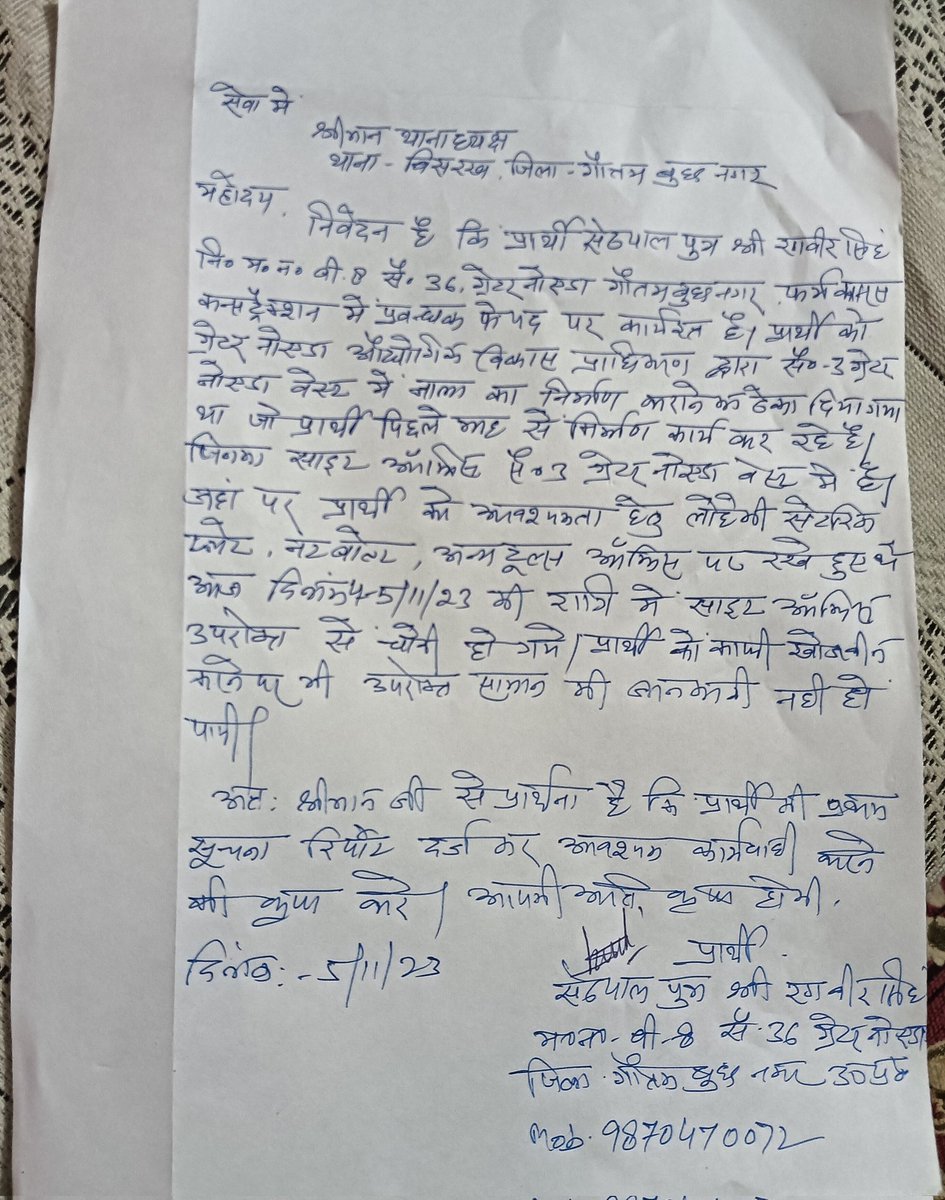 सेवा मे
श्रीमान थानाध्यक्ष
थाना - बिसरख, जिला - गौतम बुद्ध नगर
महोदय,
निवेदन है कि प्रार्थी सेठपाल पुत्र श्री रगवीर सिंह
नि० म. न. बी. 8 सै. 36, ग्रेटर नोएडा गौतम बुद्ध नगर, फर्म
कन्सट्रैक्शन में प्रबन्धक के पद पर कार्यरत है। प्रार्थी को
ग्रेटर नोएडा औद्योगिक विकास प्राधिकरण द्वारा सै०-3 ग्रेटर
नोएडा वेस्ट में नाला का निर्माण कराने का ठेका दिया गया
था जो प्रार्थी पिछले माह से निर्माण कार्य कर रहे है।
जिसका साइट ऑफिस सै०3 ग्रेटर नोएडा वेस्ट मे है।
जहां पर प्रार्थी को आवश्यकता हेतु लोहे की सेटरिंग
प्लेट, नट बोल्ट, अन्य टूल्स ऑफिस पर रखे हुए थे
आज दिनांक 4-5/11/23 की रात्रि में साइट ऑफिस
उपरोक्त से चोरी हो गये। प्रार्थी को काफी खोजबीन
करने पर भी उपरोक्त सामान की जानकारी नही हो
पायी।
अतः श्रीमान जी से प्रार्थना है कि प्रार्थी की प्रथम
सूचना रिपोर्ट दर्ज कर आवश्यक कार्यवाही करने
की कृपा करे। आपकी अति कृपा होगी.
प्रार्थी.
दिनांक:- 5/11/23
सेठपाल पुत्र श्री रगवीर सिंह
म०न०- बी-8 सै. 36 ग्रेटर नोएडा
जिला. गौतम बुद्ध नगर उ०प्र०
Mob. 9870470072